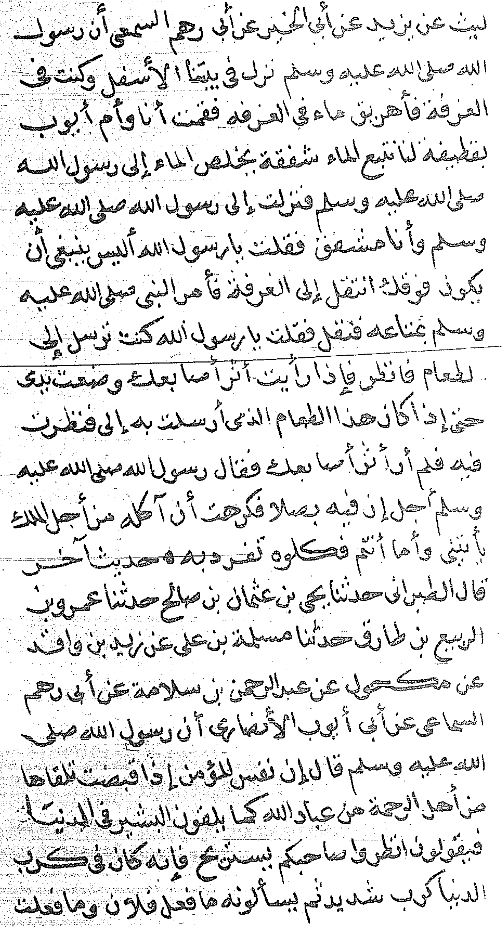 ليث عن يزيد عن أبي الخير عن أبي رهم السمعى أن رسول
الله صلى الله عليه وسلم نزل في بيتنا الأسفل وكنت فى
الغرفة فأهريق ماء في الغرفه فقمت أنا وأم أيوب
بقطيفه لنا نتبع الماء شفقة يخلص الماء إلى رسول الله
صلى الله عليه وسلم فنزلت إلى رسول الله صلى الله عليه
وسلم وأنا مشفق فقلت يا رسول الله أليس ينبغى أن
يكون فوقك انتقل إلى الغرفة فأمر النبى صلى الله عليه
وسلم بمتاعه فنقل فقلت يا رسول الله كنت ترسل إلى
لطعام فانظر فإذا رأيت أثر أصابعك وضعت يدى
حتى إذا كان هذا الطعام الذى أرسلت به إلى فنظرت
فيه فلم أر أثر أصابعك فقال رسول الله صلى الله عليه
وسلم أجل إن فيه بصلا فكرهت أن آكله من أجل الملك
يأتينى وأما أنتم فكلوه تفرد به ه حديث آخر
قال الطبرانى حدثنا يحيى بن عثمان بن صالح حدثنا عمرو بن
الربيع بن طارق حدثنا مسلمة بن على عن زيد بن واقد
عن مكحول عن عبد الرحمن بن سلامة عن أبى رهم
السماعى عن أبي أيوب الأنصارى أن رسول الله صلى
الله عليه وسلم قال إن نفس المؤمن إذا قبضت تلقاها
من أهل الرحمة من عباد الله كما يلقون البشير في الدنيا
فيقولون انظروا صاحبكم يستريح فإنه كان فى كرب
الدنيا كرب شديد ثم يسألونه ما فعل فلان وما فعلت